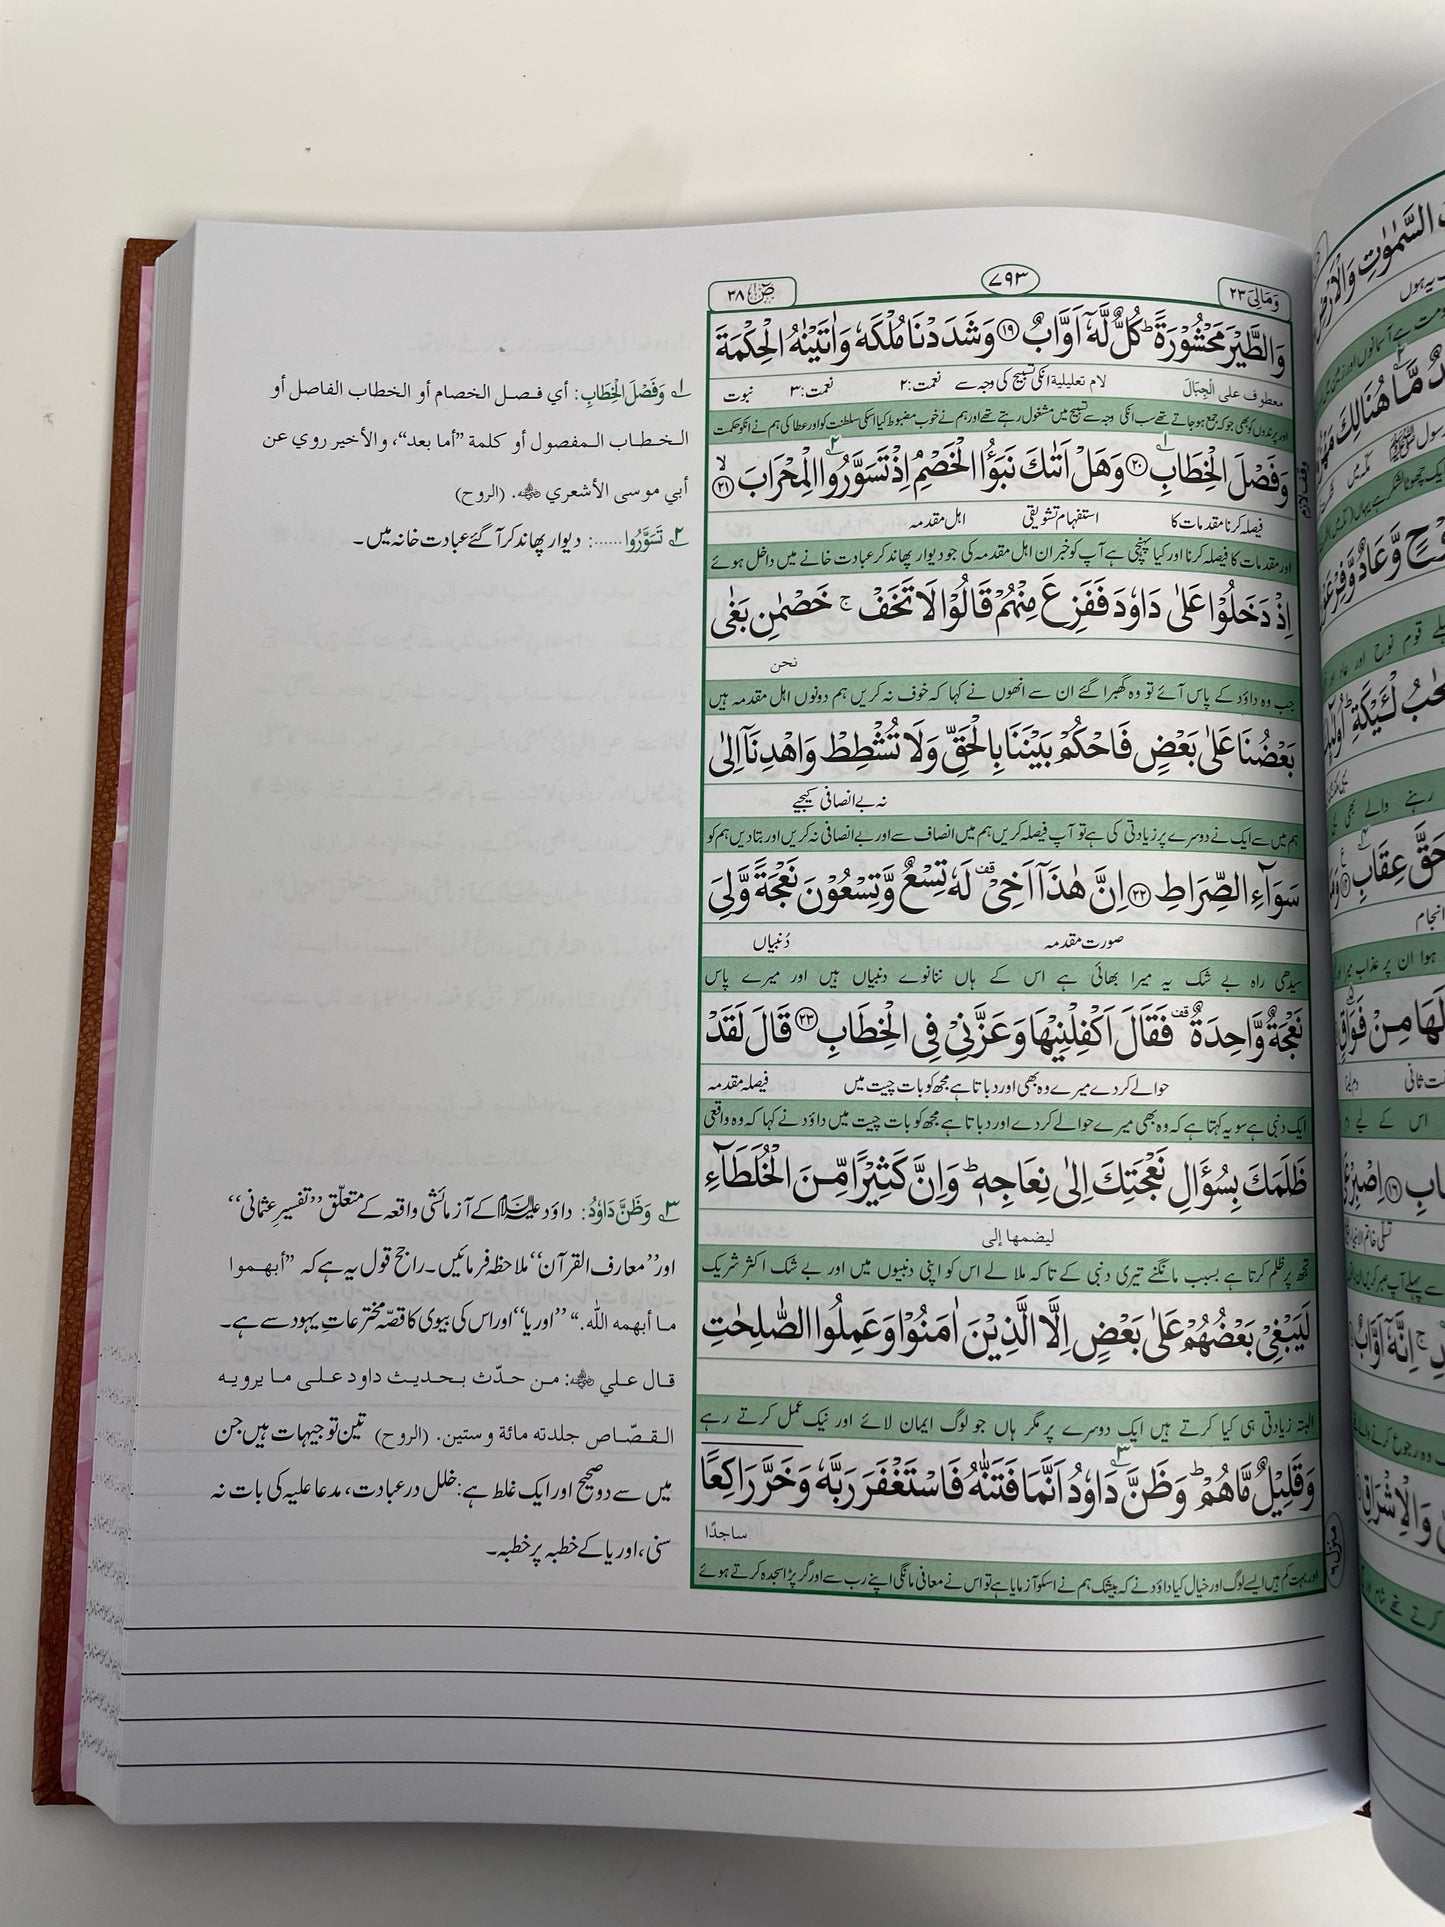 وَمَالِیَ ۲۳
۷۹۳
صٓ ۳۸
وَالطَّیْرَ مَحْشُوْرَةً ؕ کُلٌّ لَّهٗۤ اَوَّابٌ ﴿۱۹﴾ وَشَدَدْنَا مُلْکَهٗ وَاٰتَیْنٰهُ الْحِکْمَةَ
معطوف علی الْجِبَالَ لام تعلیلیة انکی تسبیح کی وجہ سے نعمت:۲ نعمت:۳ نبوت
اور پرندوں کو بھی جو کہ جمع ہو جاتے تھے سب انکی وجہ سے تسبیح میں مشغول رہتے تھے اور ہم نے خوب مضبوط کیا اسکی سلطنت کو اور عطا کی ہم نے انکو حکمت
وَفَصْلَ الْخِطَابِ ۱ ﴿۲۰﴾ وَهَلْ اَتٰىكَ نَبَؤُا الْخَصْمِ اِذْ تَسَوَّرُوا ۲ الْمِحْرَابَ ﴿۲۱﴾ لا
وقف لازم
فیصلہ کرنا مقدمات کا استفہام تشویقی اہل مقدمہ
اور مقدمات کا فیصلہ کرنا اور کیا پہنچی ہے آپ کو خبر ان اہل مقدمہ کی جو دیوار پھاند کر عبادت خانے میں داخل ہوئے
اِذْ دَخَلُوْا عَلٰی دَاوٗدَ فَفَزِعَ مِنْهُمْ قَالُوْا لَا تَخَفْ ۚ خَصْمٰنِ بَغٰی
نحن
جب وہ داؤد کے پاس آئے تو وہ گھبرا گئے ان سے انھوں نے کہا کہ خوف نہ کریں ہم دونوں اہل مقدمہ ہیں
بَعْضُنَا عَلٰی بَعْضٍ فَاحْکُمْ بَیْنَنَا بِالْحَقِّ وَلَا تُشْطِطْ وَاهْدِنَاۤ اِلٰی
نہ بے انصافی کیجیے
ہم میں سے ایک نے دوسرے پر زیادتی کی ہے تو آپ فیصلہ کریں ہم میں انصاف سے اور بے انصافی نہ کریں اور بتا دیں ہم کو
سَوَآءِ الصِّرَاطِ ﴿۲۲﴾ اِنَّ هٰذَاۤ اَخِیْ قف لَهٗ تِسْعٌ وَّتِسْعُوْنَ نَعْجَةً وَّلِیَ
صورت مقدمہ دُنبیاں
سیدھی راہ بے شک یہ میرا بھائی ہے اس کے ہاں ننانوے دنبیاں ہیں اور میرے پاس
نَعْجَةٌ وَّاحِدَةٌ قف فَقَالَ اَکْفِلْنِیْهَا وَعَزَّنِیْ فِی الْخِطَابِ ﴿۲۳﴾ قَالَ لَقَدْ
حوالے کر دے میرے وہ بھی اور دباتا ہے مجھ کو بات چیت میں فیصلہ مقدمہ
ایک دنبی ہے سو یہ کہتا ہے کہ وہ بھی میرے حوالے کر دے اور دباتا ہے مجھ کو بات چیت میں داؤد نے کہا کہ وہ واقعی
ظَلَمَكَ بِسُؤَالِ نَعْجَتِكَ اِلٰی نِعَاجِهٖ ؕ وَاِنَّ کَثِیْرًا مِّنَ الْخُلَطَآءِ
لیضمها إلی
تجھ پر ظلم کرتا ہے بسبب مانگنے تیری دنبی کے تاکہ ملا لے اس کو اپنی دنبیوں میں اور بے شک اکثر شریک
لَیَبْغِیْ بَعْضُهُمْ عَلٰی بَعْضٍ اِلَّا الَّذِیْنَ اٰمَنُوْا وَعَمِلُوا الصّٰلِحٰتِ
البتہ زیادتی ہی کیا کرتے ہیں ایک دوسرے پر مگر ہاں جو لوگ ایمان لائے اور نیک عمل کرتے رہے
وَقَلِیْلٌ مَّا هُمْ ؕ وَظَنَّ ۳ دَاوٗدُ اَنَّمَا فَتَنّٰهُ فَاسْتَغْفَرَ رَبَّهٗ وَخَرَّ رَاکِعًا
ساجدًا
اور بہت کم ہیں ایسے لوگ اور خیال کیا داؤد نے کہ بیشک ہم نے اسکو آزمایا ہے تو اس نے معافی مانگی اپنے رب سے اور گر پڑا سجدہ کرتے ہوئے
منزل ۶
۱ وَفَصْلَ الْخِطَابِ: أي فصل الخصام أو الخطاب الفاصل أو
الخطاب المفصول أو كلمة ”أما بعد“، والأخير روي عن
أبي موسى الأشعري ؓ. (الروح)
۲ تَسَوَّرُوا......: دیوار پھاند کر آ گئے عبادت خانہ میں۔
۳ وَظَنَّ دَاوٗدُ: داؤد علیہ السلام کے آزمائشی واقعہ کے متعلّق ”تفسیر عثمانی“
اور ”معارف القرآن“ ملاحظہ فرمائیں۔ راجح قول یہ ہے کہ ”أبهموا
ما أبهمه الله.“ ”اوریا“ اور اس کی بیوی کا قصّہ مخترعاتِ یہود سے ہے۔
قال علي ؓ: من حدّث بحديث داود على ما يرويه
القصّاص جلدته مائة وستين. (الروح) تین توجیہات ہیں جن
میں سے دو صحیح اور ایک غلط ہے: خلل در عبادت، مدعا علیہ کی بات نہ
سنی، اوریا کے خطبہ پر خطبہ۔